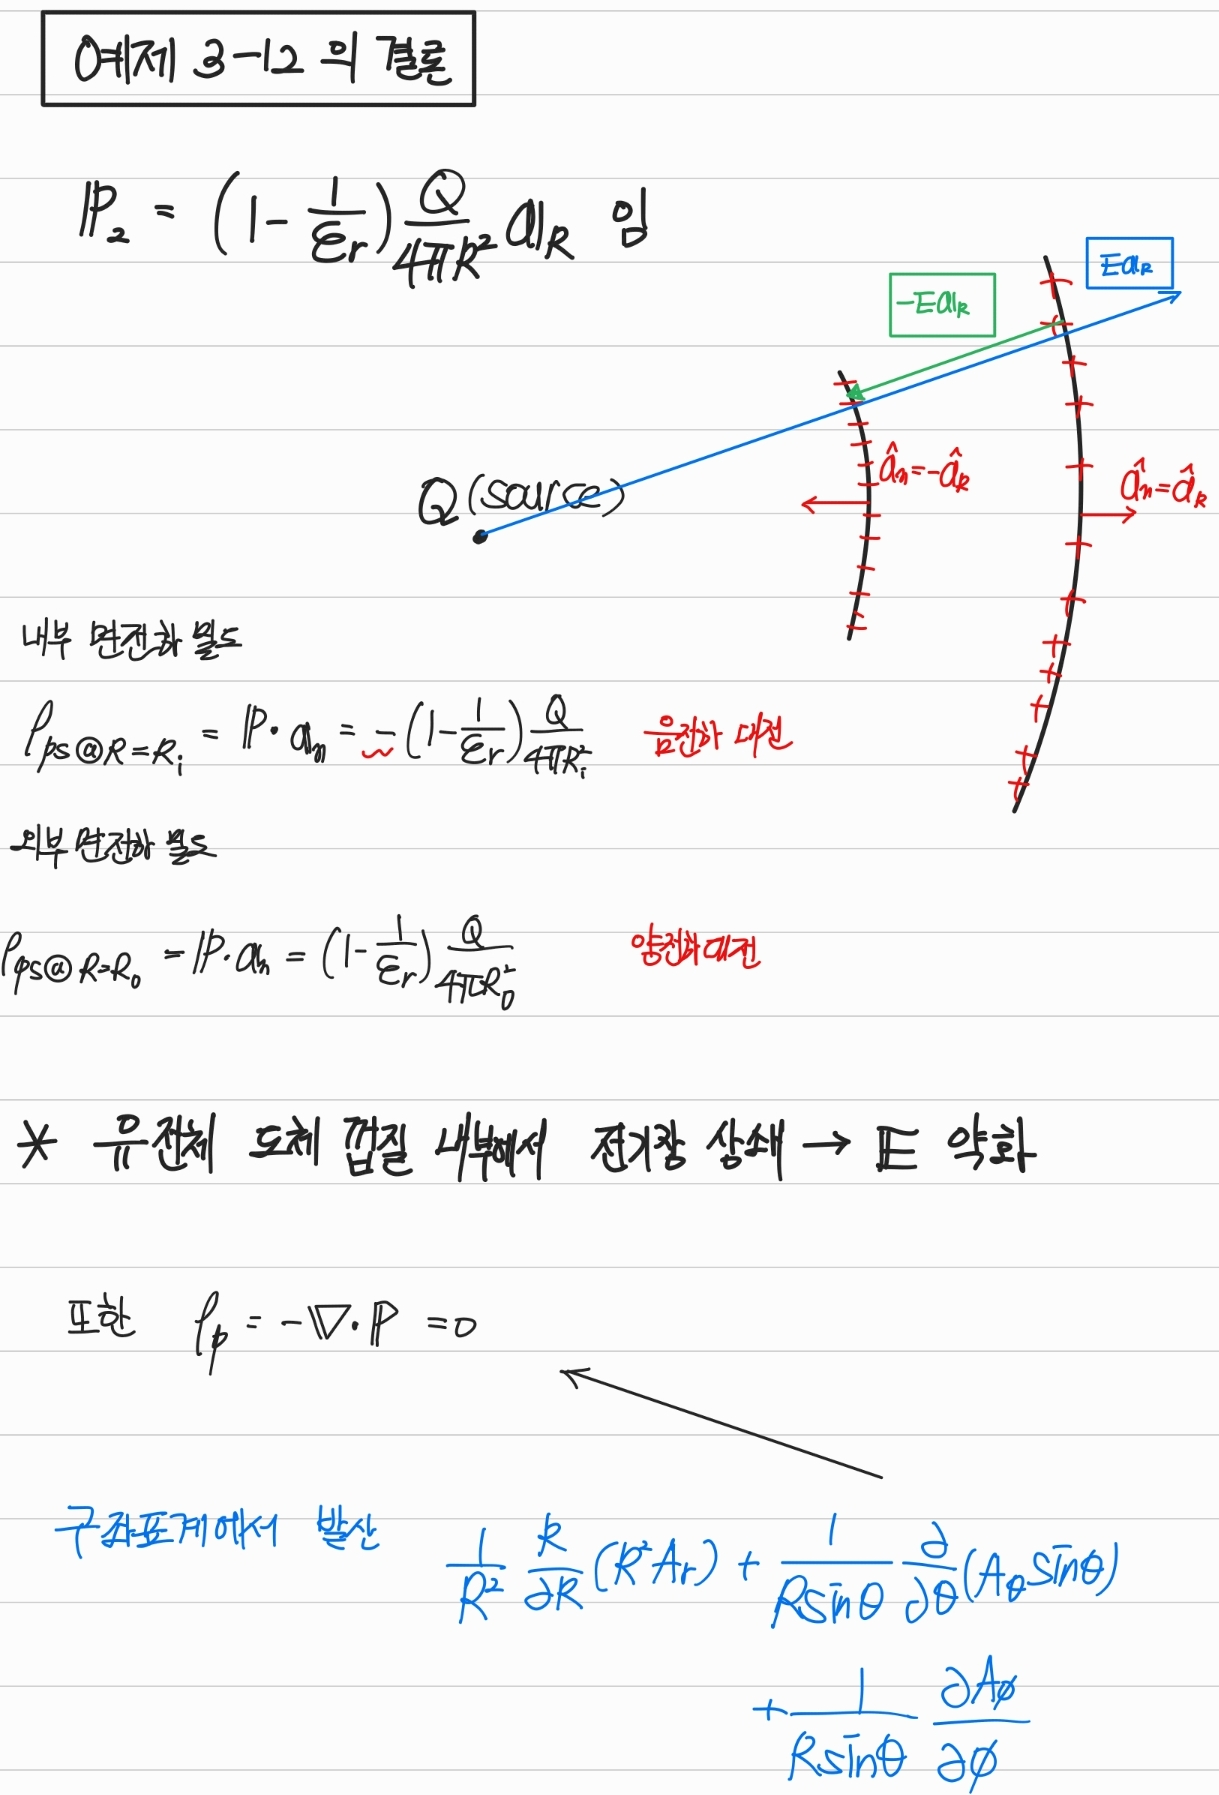 예제 3-12 의 결론
P₂ = (1 - 1/εr) Q/4πR² aR 임
EaR
-EaR
Q (source)
âₙ = -âR
âₙ = âR
내부 면전하 밀도
ρps@R=Ri = P · aₙ = -(1 - 1/εr) Q/4πRi² 음전하 대전
외부 면전하 밀도
ρps@R=R₀ = P · aₙ = (1 - 1/εr) Q/4πR₀² 양전하 대전
* 유전체 도체 껍질 내부에서 전기장 상쇄 → E 약화
또한 ρp = -∇ · P = 0
구좌표계에서 발산 1/R² R/∂R (R²Ar) + 1/Rsinθ ∂/∂θ (Aθ sinθ)
+ 1/Rsinθ ∂Aφ/∂φ